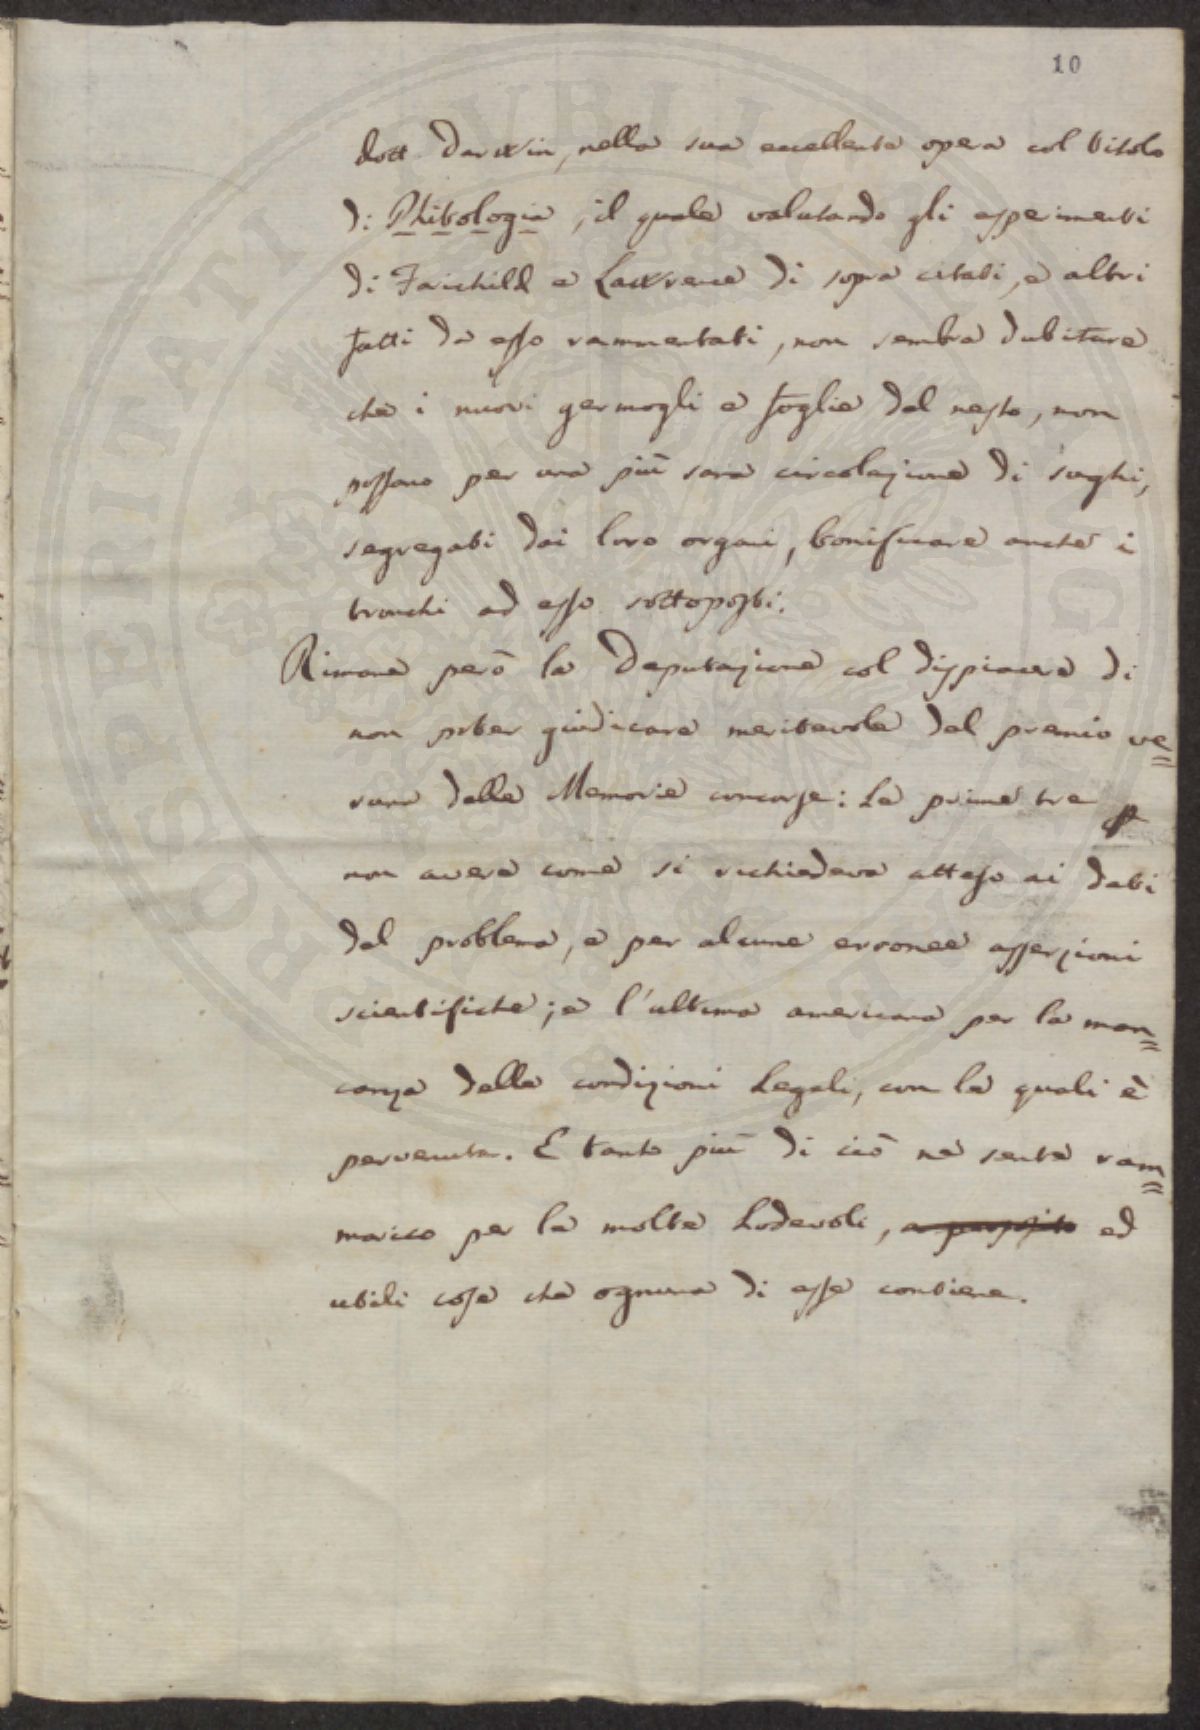 10
dott. Darwin, nella sua eccellente opera col titolo
di Phitologia, il quale valutando gli esperimenti
di Fairchild e Lawrence di sopra citati, e altri
fatti da esso rammentati, non sembra dubitare
che i nuovi germogli e foglie del nesto, non
possano per una più sana circolazione di sughi,
segregati dai loro organi, bonificare anche i
tronchi ad esso sottoposti.
Rimane però la Deputazione col dispiacere di
non poter giudicare meritevole del premio ve=
runa delle Memorie concorse: Le prime tre p
non avere come si richiedeva atteso ai dati
del problema, e per alcune erronee asserzioni
scientifiche; e l'ultima americana per la man=
canza delle condizioni Legali, con le quali è
pervenuta. E tanto più di ciò ne sente ram=
marico per le molte Lodevoli, a proposito ed
utili cose che ognuna di esse contiene.
PUBLICAE PROSPERITATI